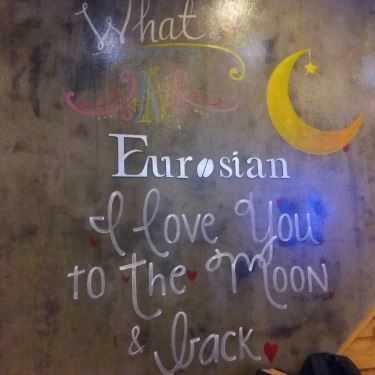 What
AN
Eurosian
I love You
to the Moon
& back